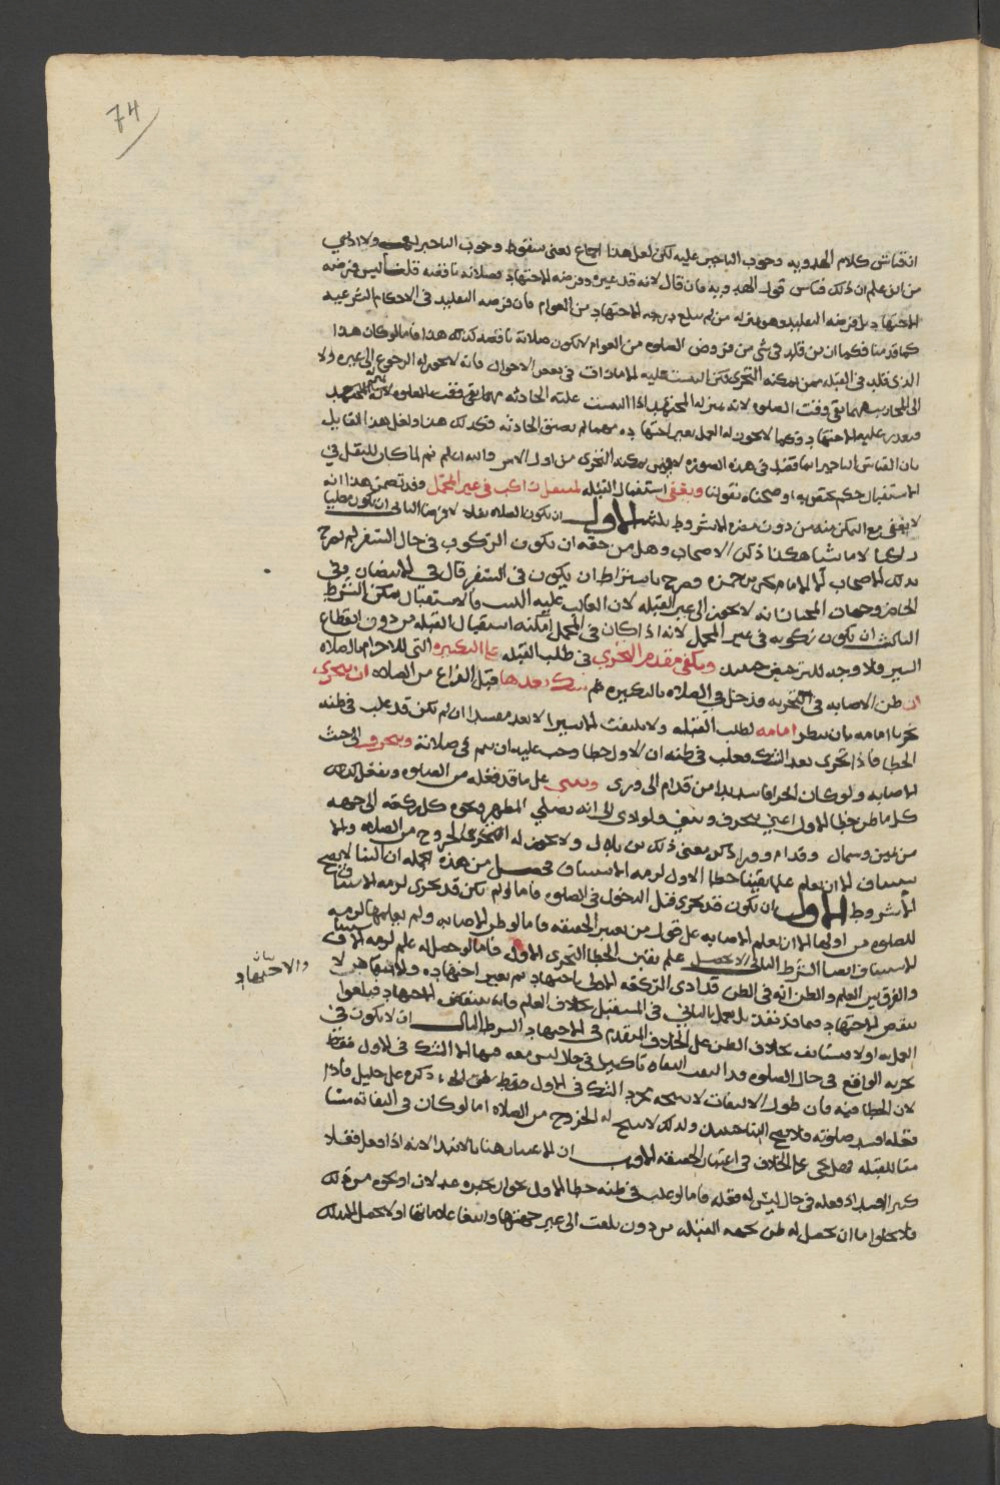 74
ان قياس كلام المهدويه وجوب التاخير عليه لكن لعل هذا اجماع يعني سقوط وجوب التاخير
من اين علم ان ذلك قياس قول المهدويه فان قال لانه قد غيره وفرضه الاجتهاد فصلاته ناقصه قلنا ليس فرضه
الاجتهاد بل فرضه التقليد وهو بمنزله من لم يبلغ درجه الاجتهاد من العوام فان فرضه التقليد في الاحكام الشرعيه
كما قدمنا فكما ان من قلد في شي من فروض الصلوه من العوام لا تكون صلاته ناقصه كذلك هذا فاما لو كان هذا
الذي قلد في القبله ممن يمكنه التحري لكن التبست عليه الامارات في بعض الاحوال فانه لا يجوز له الرجوع الى غيره ولا
الى المحاريب مهما بقي وقت الصلوه لانه بمنزله المجتهد اذا التبست عليه الحادثه مهما بقي وقت
وتعذر عليه الاجتهاد وكما لا يجوز له العمل بغير اجتهاده مهما لم تضق الحادثه فكذلك هذا ولعل هذا القايل
بان القياس التاخير انما قصد في هذه الصوره لا فيمن يمكنه التحري من اول الامر والله اعلم ثم لما كان للنفل في
الاستقبال حكم يختص به اوضحناه بقولنا ويعفى استقبال القبله لمتنفل راكب في غير المحمل وقد تضمن هذا انه
لا يعفى مع التمكن منه من دون هذه الشروط الثلثه الاول ان تكون الصلاه نفلا لا فرضا الثاني ان يكون مصليا
راكبا لا ماشيا هكذا ذكر الاصحاب وهل من حقه ان يكون الركوب في حال السفر لم يصرح
بذلك الاصحاب اما الامام يحيى بن حمزه فصرح باشتراط ان يكون في السفر قال في الانتصار وفي
الحاضر وجهان المختار انه لا يجوز الى غير القبله لان الغالب عليه اللبث والاستقبال ممكن الشرط
الثالث ان يكون ركوبه في غير المحمل لانه اذا كان في المحمل امكنه استقبال القبله من دون انقطاع
السير فلا وجه للترخيص حينئذ ويكفي مقدم التحري في طلب القبله على التكبيره التي للاحرام بالصلاه
ان ظن الاصابه في تحريه ودخل في الصلاه بالتكبيره ثم شك بعدها قبل الفراغ من الصلاه ان يتحرى
تحريا امامه بان ينظر امامه لطلب القبله ولا يلتفت الا يسيرا لا يعد مفسدا ان لم تكن قد غلب في ظنه
الخطا فاذا تحرى بعد الشك فغلب في ظنه ان الاول خطا وجب عليه ان يتم في صلاته وينحرف الى حيث
الاصابه ولو كان انحرافا من قدام الى ورى ويبني على ما قد فعله من الصلوه ويفعل كذلك
كلما ظن خطا الاول اعني ينحرف ويبني ولو ادى الى انه يصلي الظهر ونحوه كل ركعه الى جهه
من يمين وشمال وقدام وورا ذكر معنى ذلك ولا يجوز له الخروج من الصلاه ولا
يستانف الا ان يعلم علما يقينا خطا الاول لزمه الاستيناف فحصل من هذه الجمله ان البنا لا يصح
الا بشروط الاول ان يكون قد تحرى قبل الدخول في الصلوه فاما لو لم يكن قد تحرى لزمه الاستيناف
للصلوه من اولها الا ان يعلم الاصابه على قول من يعتبر الحقيقه فاما لو ظن الاصابه ولم يعلمها لزمه
الاستيناف ايضا الشرط الثاني لا يحصل علم يقين الخطا التحري الاول فاما لو حصل له علم لزمه
والفرق بين العلم والظن انه في الظن قد ادى الركعه الاولى باجتهاد ثم تغير اجتهاده والاجتهاد لا
ينقض الاجتهاد فيما قد نفذ بل يعمل بالثاني في المستقبل بخلاف العلم فانه ينقض الاجتهاد
العمل به اولا فيستانف بخلاف الظن على الخلاف المتقدم في الاجتهاد الشرط الثالث ان لا يكون في
تحريه الواقع في حال الصلوه قد التفت التفاتا كثيرا في حال ليس معه فيها الا الشك في الاول فقط
لان الخطا فيه فان طول الالتفات لا يبيحه مجرد الشك في الاول فقط ذكره علي خليل فاذا
فعله افسد صلوته فلا يصح البنا حينئذ ولذلك لا يبيح له الخروج من الصلاه اما لو كان في التفاته
للقبله فهل هي على الخلاف في اعتبار الحقيقه الاقرب ان الاعتبار هنا بالابتدا لانه اذا فعل فعلا
كثيرا فسد اذ فعله في حال ليس له فعله فاما لو غلب في ظنه خطا الاول نحو ان يخبره عدلان او نحو ذلك
فلا يخلوا اما ان يحصل له ظن بجهه القبله من دون تلفت الى غير جهتها واتبعا علاماتها او لا يحصل الا بذلك
والاجتهاد